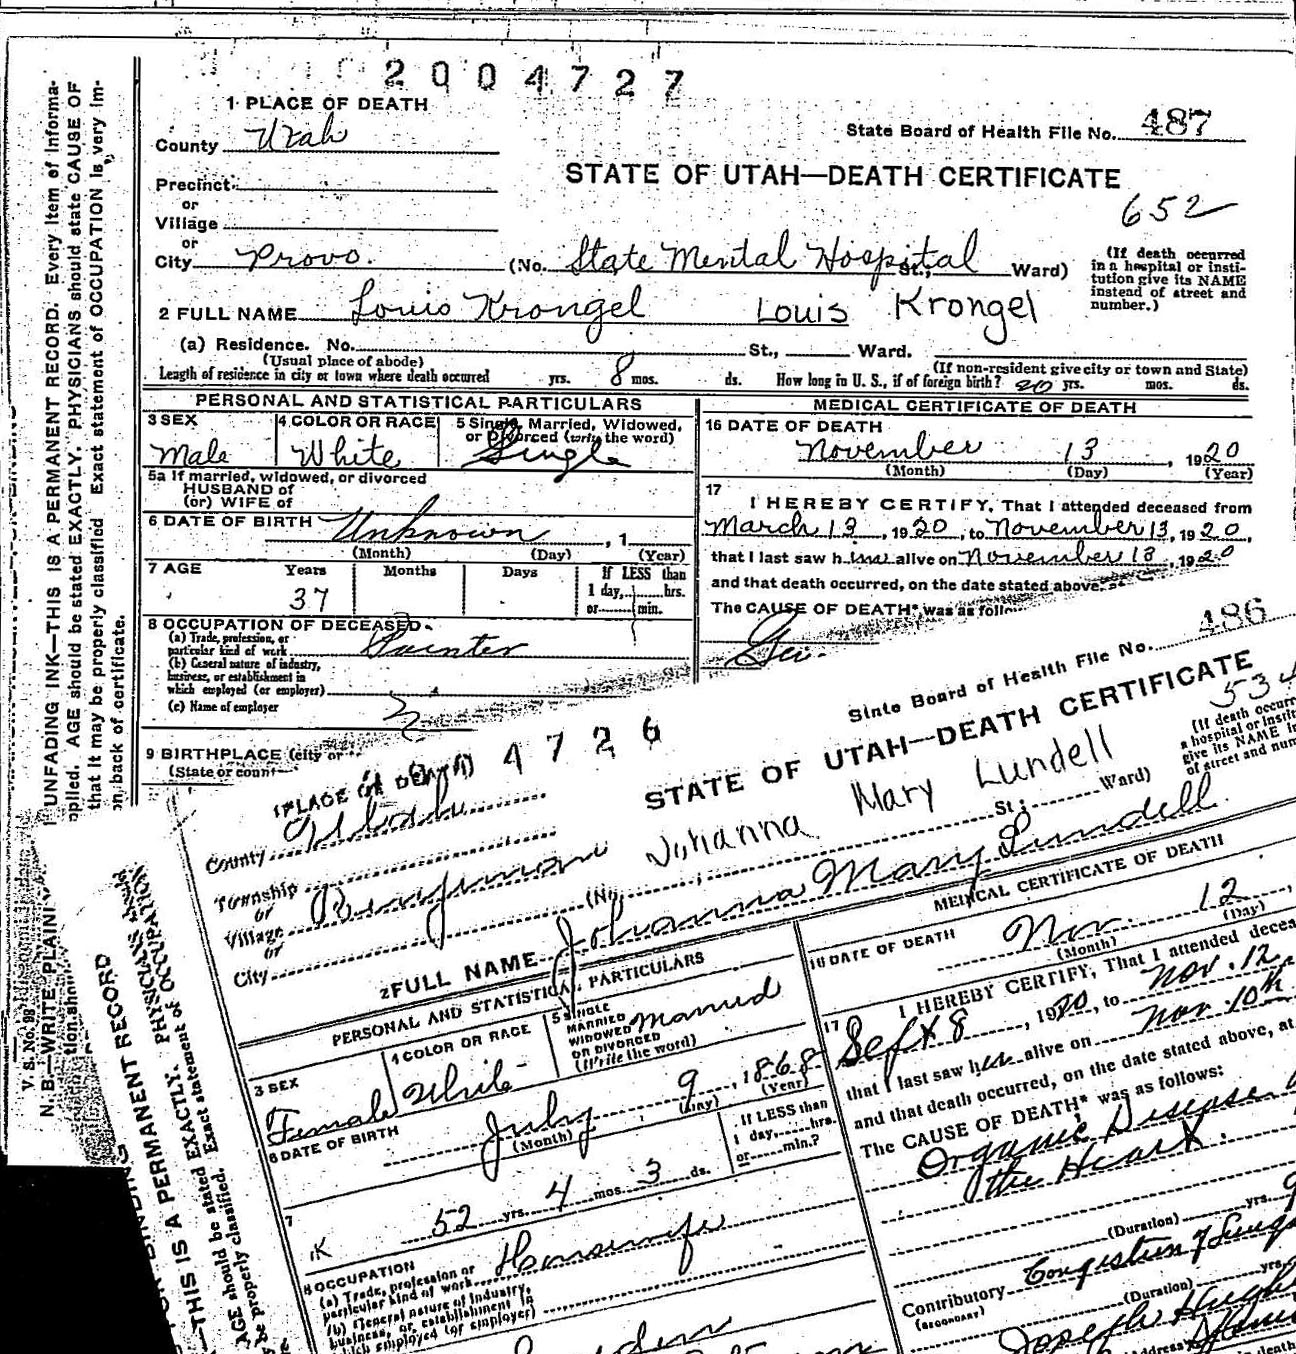 2004727
1 PLACE OF DEATH
County Utah
State Board of Health File No. 487
STATE OF UTAH—DEATH CERTIFICATE
652
Precinct
or
Village
or
City Provo. (No. State Mental Hospital St.; Ward)
(If death occurred
in a hospital or insti-
tution give its NAME
instead of street and
number.)
2 FULL NAME Louis Krongel Louis Krongel
(a) Residence. No. St., Ward.
(Usual place of abode) (If non-resident give city or town and State)
Length of residence in city or town where death occurred yrs. 8 mos. ds. How long in U. S., if of foreign birth? 20 yrs. mos. ds.
PERSONAL AND STATISTICAL PARTICULARS
3 SEX 4 COLOR OR RACE 5 Single, Married, Widowed,
or Divorced (write the word)
Male White Single
5a If married, widowed, or divorced
HUSBAND of
(or) WIFE of
6 DATE OF BIRTH Unknown , 1
(Month) (Day) (Year)
7 AGE Years Months Days If LESS than
1 day, hrs.
or min.
37
8 OCCUPATION OF DECEASED
(a) Trade, profession, or
particular kind of work Painter
(b) General nature of industry,
business, or establishment in
which employed (or employer)
(c) Name of employer
9 BIRTHPLACE (city or
(State or count
MEDICAL CERTIFICATE OF DEATH
16 DATE OF DEATH
November 13, 1920
(Month) (Day) (Year)
17
I HEREBY CERTIFY, That I attended deceased from
March 13, 1920, to November 13, 1920,
that I last saw him alive on November 13, 1920
and that death occurred, on the date stated above, at
The CAUSE OF DEATH* was as follo
Gen.
UNFADING INK—THIS IS A PERMANENT RECORD. Every Item of Informa-
AGE should be stated EXACTLY. PHYSICIANS should state CAUSE OF
that it may be properly classified Exact statement of OCCUPATION is very im-
on back of certificate.
V. S. No. 98
N. B.—WRITE PLAINLY
tion should
4726
State Board of Health File No. 486
STATE OF UTAH—DEATH CERTIFICATE
534
1 PLACE OF DEATH
County Utah
Township
or
Village Benjamin
or
City (No. St.; Ward)
Johanna Mary Lundell
[If death occurr
a hospital or instit
give its NAME i
of street and num
2 FULL NAME Johanna Mary Lundell
PERSONAL AND STATISTICAL PARTICULARS
3 SEX 4 COLOR OR RACE 5 SINGLE
MARRIED
WIDOWED
OR DIVORCED
(Write the word)
Female White Married
6 DATE OF BIRTH
July 9, 1868
(Month) (Day) (Year)
7
52 yrs. 4 mos. 3 ds.
If LESS than
1 day, hrs.
or min.?
8 OCCUPATION
(a) Trade, profession or
particular kind of work Housewife
(b) General nature of industry,
business, or establishment in
which employed (or employer)
MEDICAL CERTIFICATE OF DEATH
16 DATE OF DEATH
Nov. 12
(Month) (Day)
17 I HEREBY CERTIFY, That I attended decea
Sept 8, 1920, to Nov. 12
that I last saw her alive on Nov 10th
and that death occurred, on the date stated above, at
The CAUSE OF DEATH* was as follows:
Organic Disease
the Heart.
(Duration) yrs. 9
Contributory Congestion of Lungs
(SECONDARY)
(Duration) yrs.
Joseph Hughe
PERMANENT RECORD
—THIS IS A PERMANENT
AGE should be stated EXACTLY. PHYSICIANS
be properly classified. Exact statement of OCCUPATION